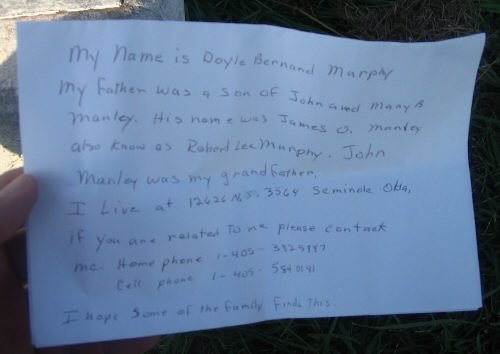 My Name is Doyle Bernand Murphy
My Father was a son of John and Mary B
Manley. His name was James O. Manley
also know as Robert Lee Murphy. John
Manley was my grandfather.
I Live at 12626 N.S. 3564 Seminole Okla,
if you are related To me please contack
me. Home phone 1-405-
Cell phone 1-405-
I hope some of the family finds This.